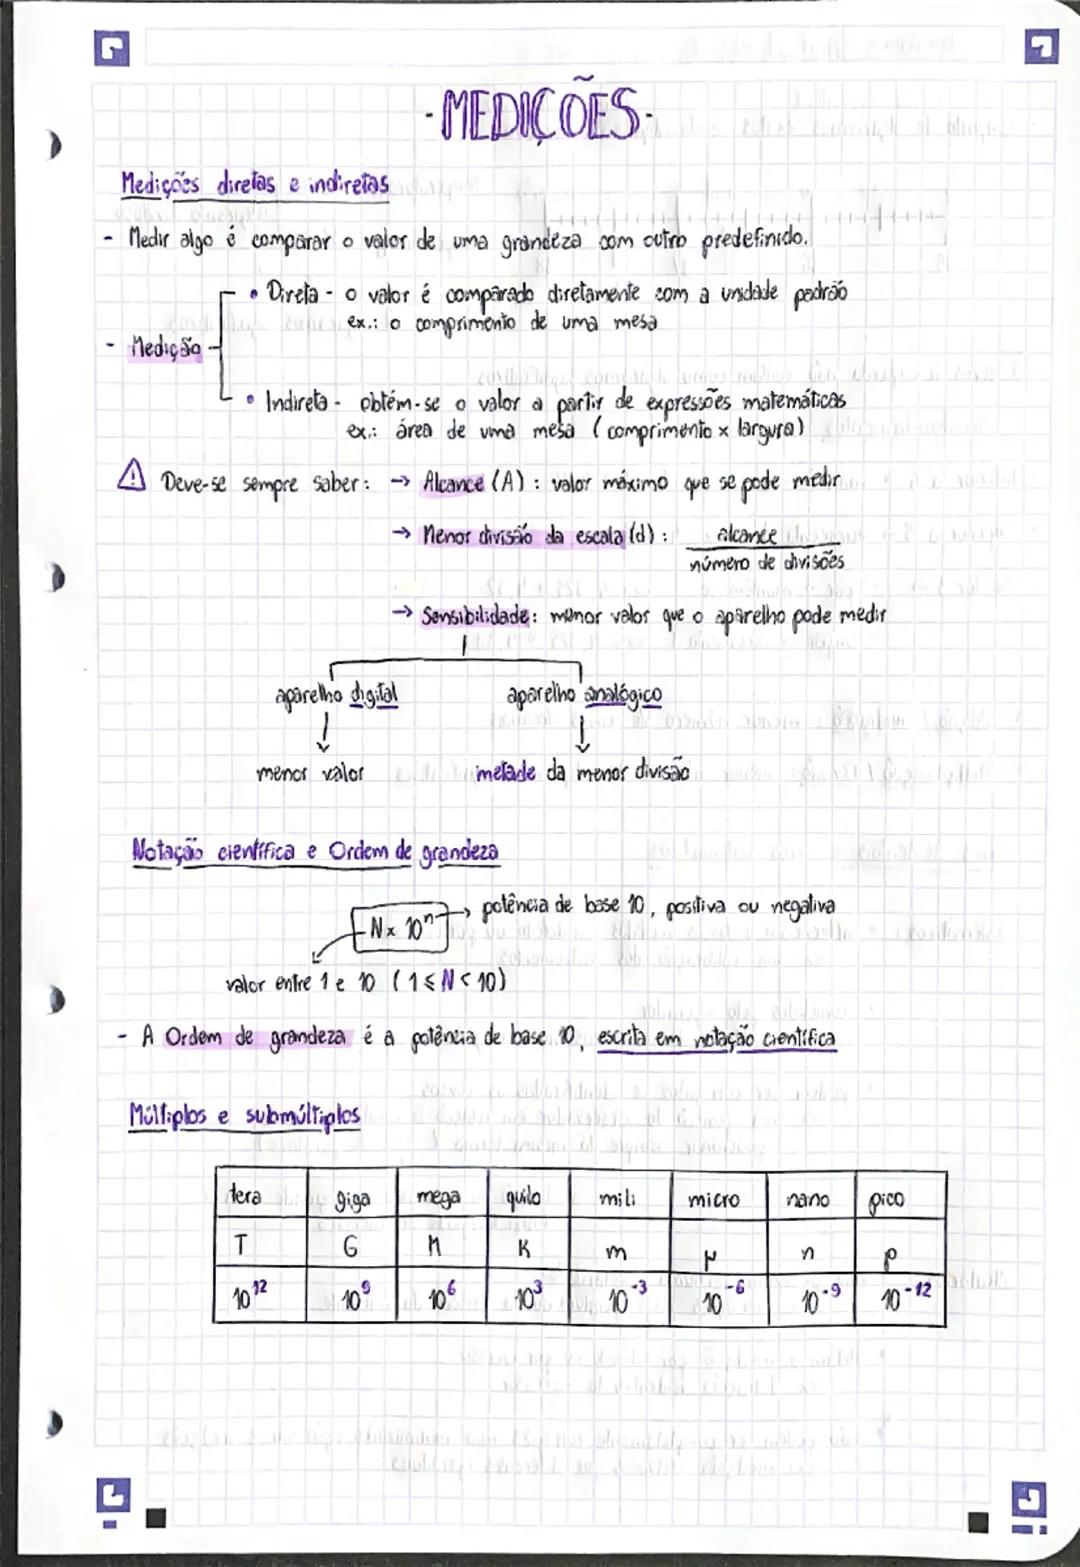 - MEDIÇÕES -
Medições diretas e indiretas
- Medir algo é comparar o valor de uma grandeza com outro predefinido.
• Direta - o valor é comparado diretamente com a unidade padrão
ex.: o comprimento de uma mesa
- Medição
• Indireta - obtém-se o valor a partir de expressões matemáticas
ex.: área de uma mesa (comprimento x largura)
⚠ Deve-se sempre saber: → Alcance (A) : valor máximo que se pode medir
→ Menor divisão da escala (d) : alcance
número de divisões
→ Sensibilidade: menor valor que o aparelho pode medir
aparelho digital aparelho analógico
menor valor metade da menor divisão
Notação científica e Ordem de grandeza
N x 10ⁿ → potência de base 10, positiva ou negativa
valor entre 1 e 10 (1 ≤ N < 10)
- A Ordem de grandeza é a potência de base 10, escrita em notação científica
Múltiplos e submúltiplos
tera giga mega quilo mili micro nano pico
T G M K m μ n p
10¹² 10⁹ 10⁶ 10³ 10⁻³ 10⁻⁶ 10⁻⁹ 10⁻¹²